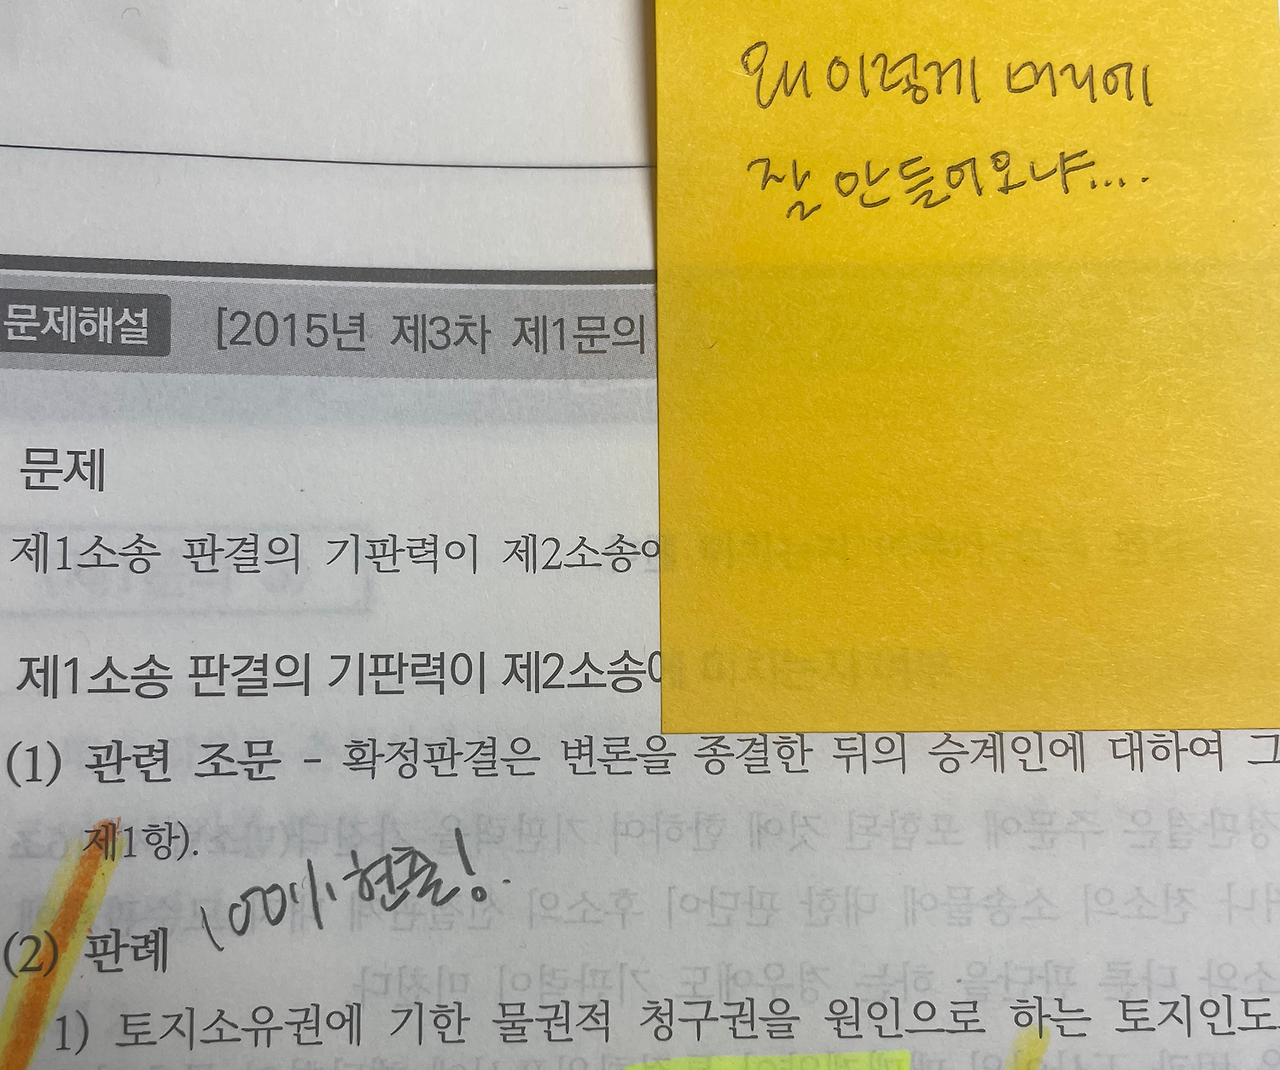 왜 이렇게 머리에
잘 안들어오냐....
문제해설 [2015년 제3차 제1문의
문제
제1소송 판결의 기판력이 제2소송에
제1소송 판결의 기판력이 제2소송에
(1) 관련 조문 - 확정판결은 변론을 종결한 뒤의 승계인에 대하여 그
제1항).
100% 현출!
(2) 판례
1) 토지소유권에 기한 물권적 청구권을 원인으로 하는 토지인도